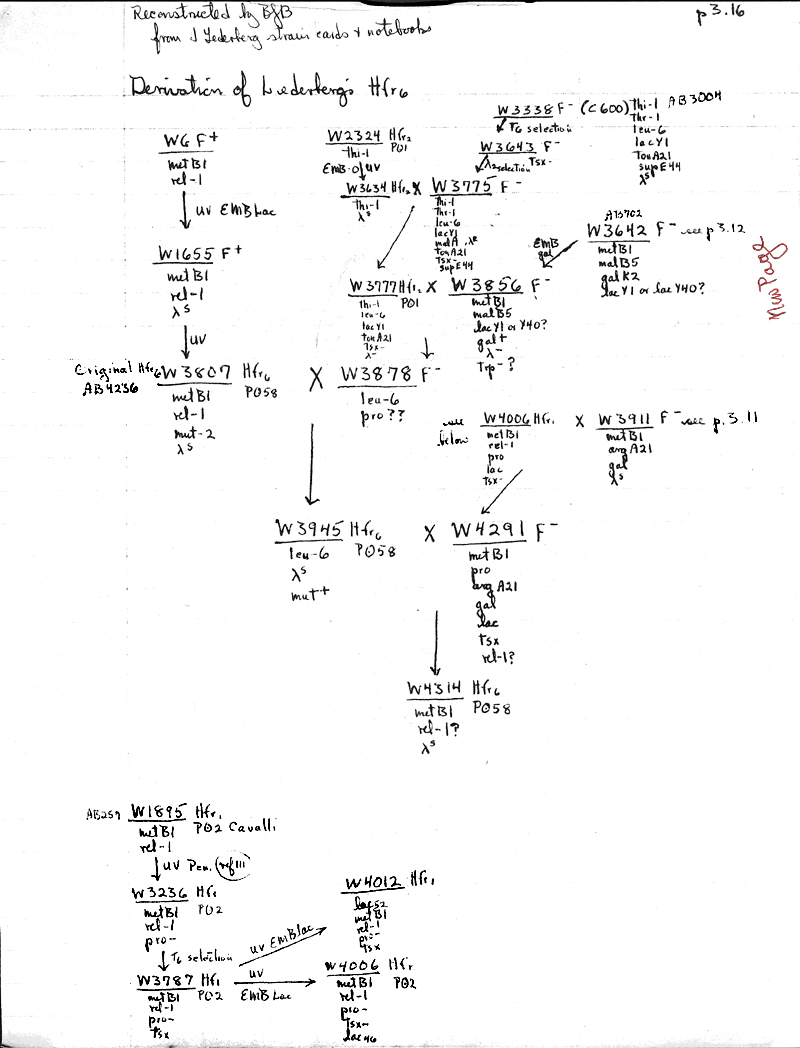 Reconstructed by BJB
from J Lederberg strain cards & notebooks
p 3.16
Derivation of Lederberg's Hfr6
W6 F+
metB1
rel-1
uv EMBLac
W1655 F+
metB1
rel-1
λs
uv
Original Hfr6
AB4236
W3807 Hfr6
PO58
metB1
rel-1
mut-2
λs
W2324 Hfr2
PO1
thi-1
EMB-O/uv
W3634 Hfr2
thi-1
λs
X
W3338 F- (C600)
T6 selection
W3643 F-
λ2 selection Tsx-
W3775 F-
thi-1
thr-1
leu-6
lacY1
malA λR
tonA21
Tsx-
supE44
thi-1 AB3004
thr-1
leu-6
lacY1
tonA21
supE44
λs
W3777 Hfr2
PO1
thi-1
leu-6
lacY1
tonA21
Tsx-
λ-
X
W3856 F-
metB1
malB5
lacY1 or Y40?
gal+
λ-
Trp-?
EMB
gal
AB702
W3642 F- see p 3.12
metB1
malB5
galK2
lacY1 or lacY40?
New Page
X
W3878 F-
leu-6
pro??
see
below
W4006 Hfr1
metB1
rel-1
pro
lac
Tsx-
X
W3911 F- see p. 3.11
metB1
argA21
gal
λs
W3945 Hfr6
PO58
leu-6
λs
mut+
X
W4291 F-
metB1
pro
argA21
gal
lac
tsx
rel-1?
W4314 Hfr6
PO58
metB1
rel-1?
λs
AB259
W1895 Hfr1
PO2 Cavalli
metB1
rel-1
uv Pen. (ref 111)
W3236 Hfr1
PO2
metB1
rel-1
pro-
T6 selection
W3787 Hfr1
PO2
metB1
rel-1
pro-
Tsx
uv EMBlac
W4012 Hfr1
lac52
metB1
rel-1
pro-
Tsx
uv
EMB Lac
W4006 Hfr
PO2
metB1
rel-1
pro-
Tsx-
lac46